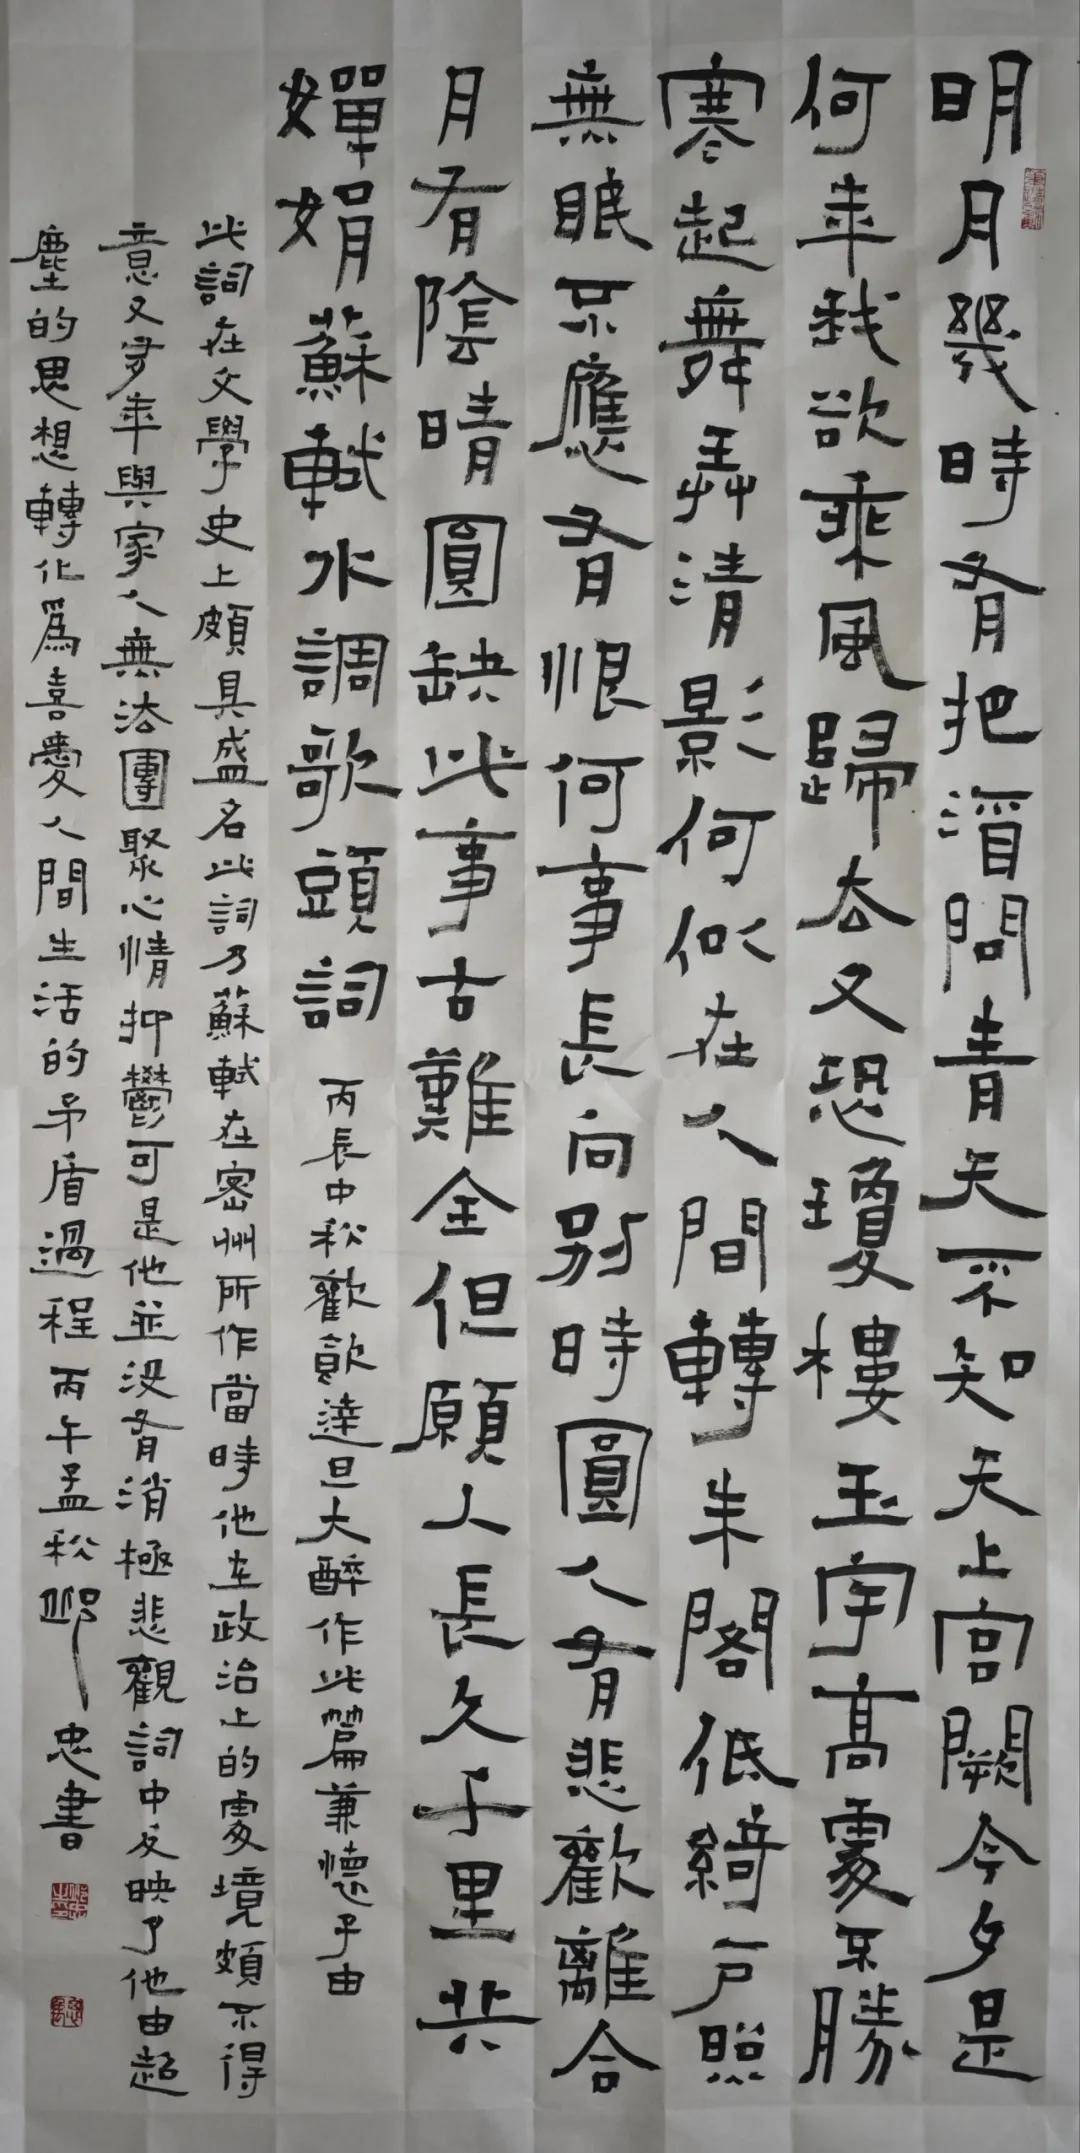 明月幾時有把酒問青天不知天上宮闕今夕是
何年我欲乘風歸去又恐瓊樓玉宇高處不勝
寒起舞弄清影何似在人間轉朱閣低綺戶照
無眠不應有恨何事長向別時圓人有悲歡離合
月有陰晴圓缺此事古難全但願人長久千里共
嬋娟蘇軾水調歌頭詞 丙辰中秋歡飲達旦大醉作此篇兼懷子由
此詞在文學史上頗具盛名此詞乃蘇軾在密州所作當時他在政治上的處境頗不得
意又多年與家人無法團聚心情抑鬱可是他並沒有消極悲觀詞中反映了他由超
塵的思想轉化為喜愛人間生活的矛盾過程丙午孟秋 忠書